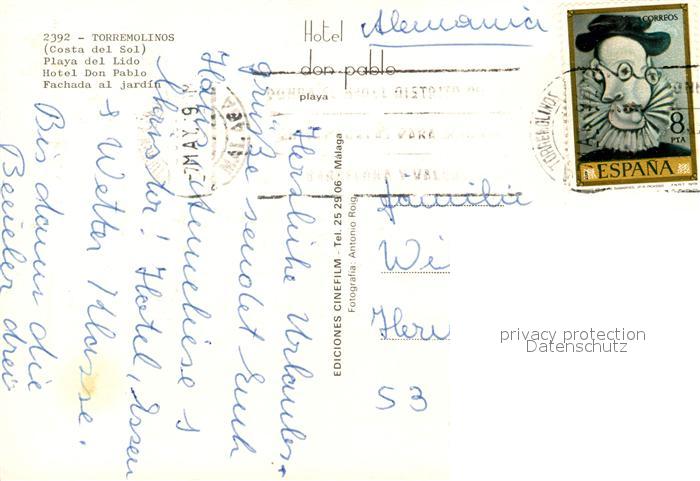 2392 - TORREMOLINOS
(Costa del Sol)
Playa del Lido
Hotel Don Pablo
Fachada al jardín
Hotel
don pablo
playa
Alemania
CORREOS
8
PTA
ESPAÑA
TORREMOLINOS
MALAGA
EDICIONES CINEFILM - Tel. 25 29 06 - Málaga
Fotografia: Antonio Roig
Herzliche Urlaubs-
grüße sendet Euch
Hans, Anneliese &
! Hotel, Essen
& Wetter Klasse.
Bis dann die
drei
Familie
Wi
53
privacy protection
Datenschutz